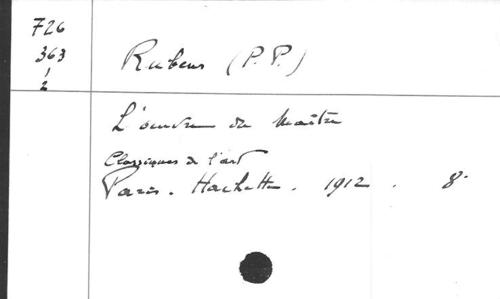 726
363
1
2
Rubens (P.P.)
L'oeuvre du Maître
Classiques de l'art
Paris. Hachette. 1912. 8°